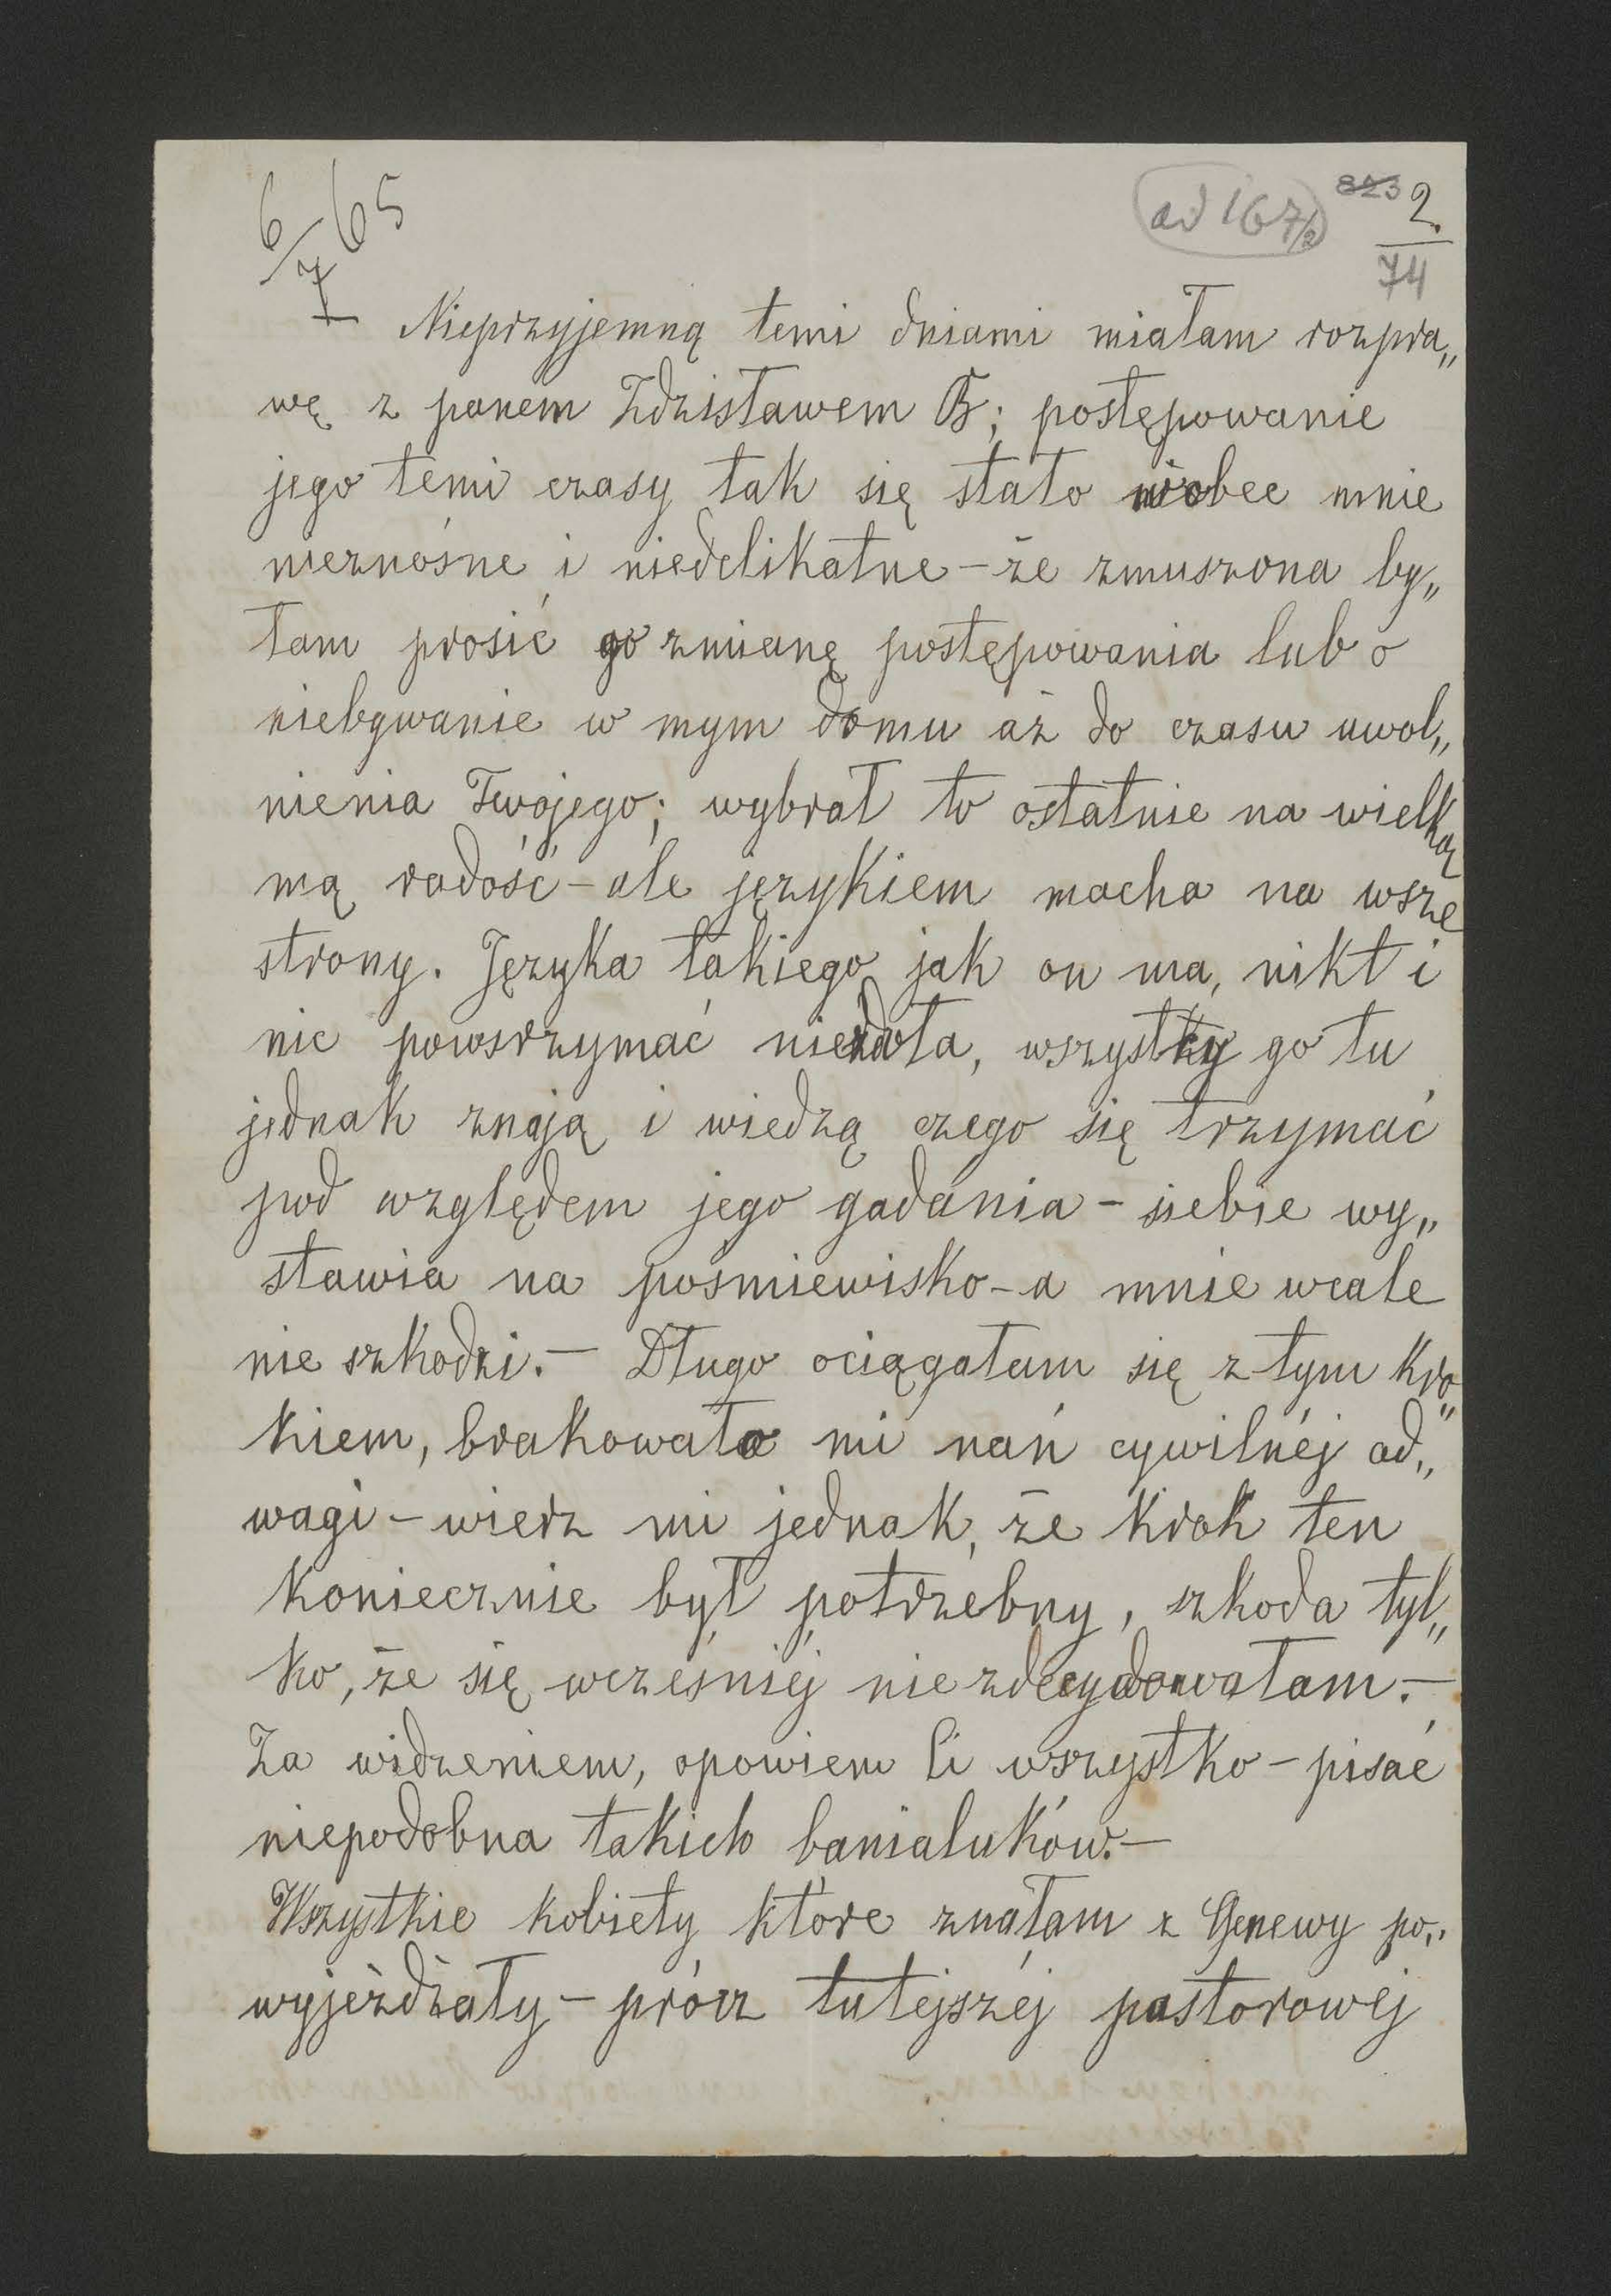 6/7 65
ad 167/2
823 2.
74
I Nieprzyjemną temi dniami miałam rozpra„
wę z panem Zdzisławem B; postępowanie
jego temi czasy tak się stało wobec mnie
nieznośne i niedelikatne – że zmuszona by„
łam prosić go zmianę postępowania lub o
niebywanie w mym domu aż do czasu uwol„
nienia Twojego; wybrał to ostatnie na wielką
mą radość – ale językiem macha na wsze
strony. Języka takiego jak on ma, nikt i
nic powstrzymać niezdoła, wszystky go tu
jednak znają i wiedzą czego się trzymać
pod względem jego gadania – siebie wy„
stawia na pośmiewisko – a mnie wcale
nie szkodzi. – Długo ociągałam się z tym kro„
kiem, brakowało mi nań cywilnéj od„
wagi – wierz mi jednak, że krok ten
koniecznie był potrzebny, szkoda tyl„
ko, że się wcześniéj niezdecydowałam. –
Za widzeniem, opowiem Ci wszystko – pisać
niepodobna takich banialuków. –
Wszystkie kobiety które znałam z Genewy po„
wyjeżdżały – prócz tutejszéj pastorowéj